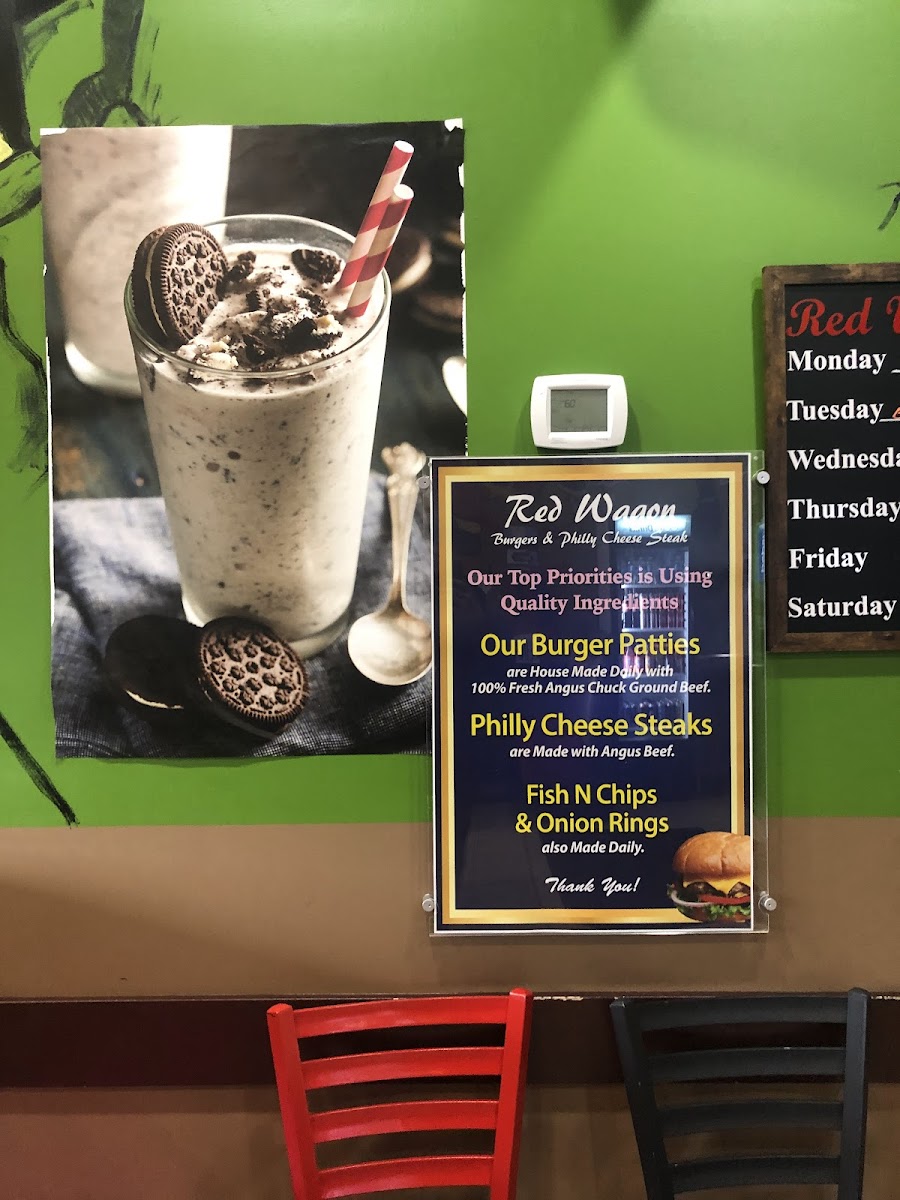 Red Wagon
Burgers & Philly Cheese Steak
Our Top Priorities is Using
Quality Ingredients
Our Burger Patties
are House Made Daily with
100% Fresh Angus Chuck Ground Beef.
Philly Cheese Steaks
are Made with Angus Beef.
Fish N Chips
& Onion Rings
also Made Daily.
Thank You!
Red
Monday
Tuesday
Wednesda
Thursday
Friday
Saturday